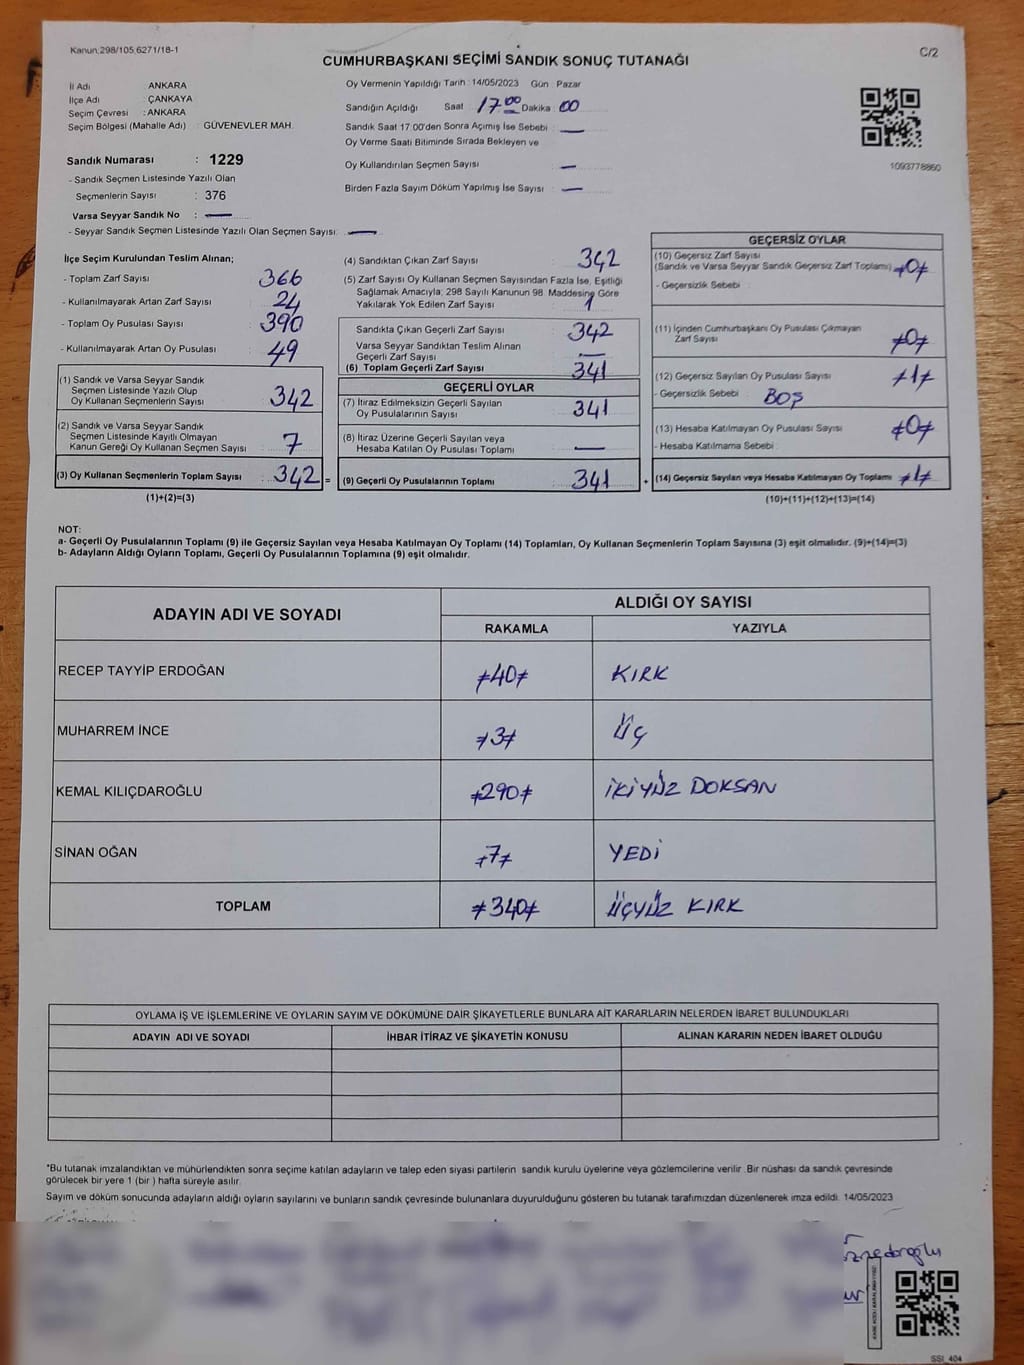 Kanun;298/105,6271/18-1
C/2
CUMHURBAŞKANI SEÇİMİ SANDIK SONUÇ TUTANAĞI
İl Adı ANKARA
İlçe Adı : ÇANKAYA
Seçim Çevresi : ANKARA
Seçim Bölgesi (Mahalle Adı) : GÜVENEVLER MAH.
Sandık Numarası : 1229
- Sandık Seçmen Listesinde Yazılı Olan
Seçmenlerin Sayısı : 376
Varsa Seyyar Sandık No : —
- Seyyar Sandık Seçmen Listesinde Yazılı Olan Seçmen Sayısı: —
Oy Vermenin Yapıldığı Tarih : 14/05/2023 Gün : Pazar
Sandığın Açıldığı Saat : 17.00 Dakika : 00
Sandık Saat 17:00'den Sonra Açımış İse Sebebi : —
Oy Verme Saati Bitiminde Sırada Bekleyen ve
Oy Kullandırılan Seçmen Sayısı : —
Birden Fazla Sayım Döküm Yapılmış İse Sayısı : —
1093778860
İlçe Seçim Kurulundan Teslim Alınan;
- Toplam Zarf Sayısı : 366
- Kullanılmayarak Artan Zarf Sayısı : 24
- Toplam Oy Pusulası Sayısı : 390
- Kullanılmayarak Artan Oy Pusulası : 49
(1) Sandık ve Varsa Seyyar Sandık
Seçmen Listesinde Yazılı Olup
Oy Kullanan Seçmenlerin Sayısı : 342
(2) Sandık ve Varsa Seyyar Sandık
Seçmen Listesinde Kayıtlı Olmayan
Kanun Gereği Oy Kullanan Seçmen Sayısı : 7
(3) Oy Kullanan Seçmenlerin Toplam Sayısı : 342 =
(1)+(2)=(3)
(4) Sandıktan Çıkan Zarf Sayısı : 342
(5) Zarf Sayısı Oy Kullanan Seçmen Sayısından Fazla İse, Eşitliği
Sağlamak Amacıyla; 298 Sayılı Kanunun 98. Maddesine Göre
Yakılarak Yok Edilen Zarf Sayısı : 1
Sandıkta Çıkan Geçerli Zarf Sayısı : 342
Varsa Seyyar Sandıktan Teslim Alınan
Geçerli Zarf Sayısı : —
(6) Toplam Geçerli Zarf Sayısı : 341
GEÇERLİ OYLAR
(7) İtiraz Edilmeksizin Geçerli Sayılan
Oy Pusulalarının Sayısı : 341
(8) İtiraz Üzerine Geçerli Sayılan veya
Hesaba Katılan Oy Pusulası Toplamı : —
(9) Geçerli Oy Pusulalarının Toplamı : 341 +
GEÇERSİZ OYLAR
(10) Geçersiz Zarf Sayısı
(Sandık ve Varsa Seyyar Sandık Geçersiz Zarf Toplamı) : ≠0≠
- Geçersizlik Sebebi :
(11) İçinden Cumhurbaşkanı Oy Pusulası Çıkmayan
Zarf Sayısı : ≠0≠
(12) Geçersiz Sayılan Oy Pusulası Sayısı : ≠1≠
- Geçersizlik Sebebi : BOŞ
(13) Hesaba Katılmayan Oy Pusulası Sayısı : ≠0≠
- Hesaba Katılmama Sebebi :
(14) Geçersiz Sayılan veya Hesaba Katılmayan Oy Toplamı : ≠1≠
(10)+(11)+(12)+(13)=(14)
NOT:
a- Geçerli Oy Pusulalarının Toplamı (9) ile Geçersiz Sayılan veya Hesaba Katılmayan Oy Toplamı (14) Toplamları, Oy Kullanan Seçmenlerin Toplam Sayısına (3) eşit olmalıdır. (9)+(14)=(3)
b- Adayların Aldığı Oyların Toplamı, Geçerli Oy Pusulalarının Toplamına (9) eşit olmalıdır.
ADAYIN ADI VE SOYADI
ALDIĞI OY SAYISI
RAKAMLA YAZIYLA
RECEP TAYYİP ERDOĞAN ≠40≠ KIRK
MUHARREM İNCE ≠3≠ ÜÇ
KEMAL KILIÇDAROĞLU ≠290≠ İKİYÜZ DOKSAN
SİNAN OĞAN ≠7≠ YEDİ
TOPLAM ≠340≠ ÜÇYÜZ KIRK
OYLAMA İŞ VE İŞLEMLERİNE VE OYLARIN SAYIM VE DÖKÜMÜNE DAİR ŞİKAYETLERLE BUNLARA AİT KARARLARIN NELERDEN İBARET BULUNDUKLARI
ADAYIN ADI VE SOYADI İHBAR İTİRAZ VE ŞİKAYETİN KONUSU ALINAN KARARIN NEDEN İBARET OLDUĞU
*Bu tutanak imzalandıktan ve mühürlendikten sonra seçime katılan adayların ve talep eden siyasi partilerin sandık kurulu üyelerine veya gözlemcilerine verilir. Bir nüshası da sandık çevresinde
görülecek bir yere 1 (bir ) hafta süreyle asılır.
Sayım ve döküm sonucunda adayların aldığı oyların sayılarını ve bunların sandık çevresinde bulunanlara duyurulduğunu gösteren bu tutanak tarafımızdan düzenlenerek imza edildi. 14/05/2023
SSI_404